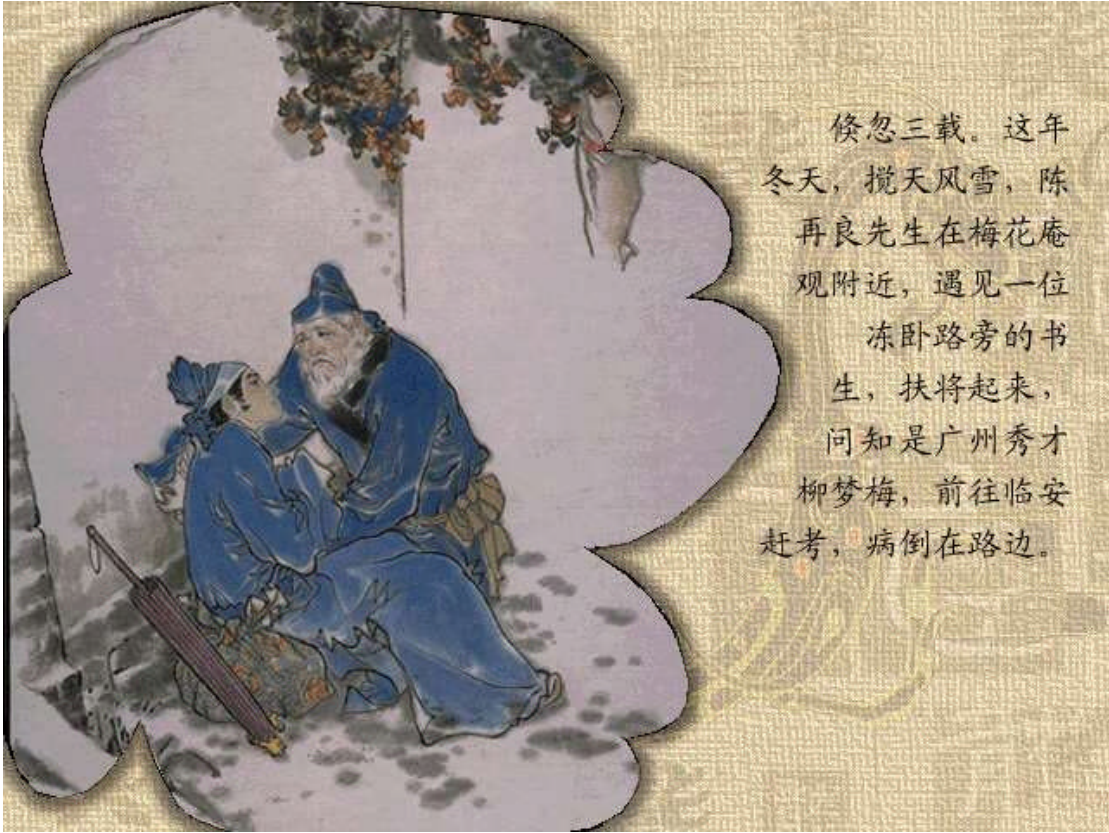 倏忽三载。这年
冬天，搅天风雪，陈
再良先生在梅花庵
观附近，遇见一位
冻卧路旁的书
生，扶将起来，
问知是广州秀才
柳梦梅，前往临安
赶考，病倒在路边。